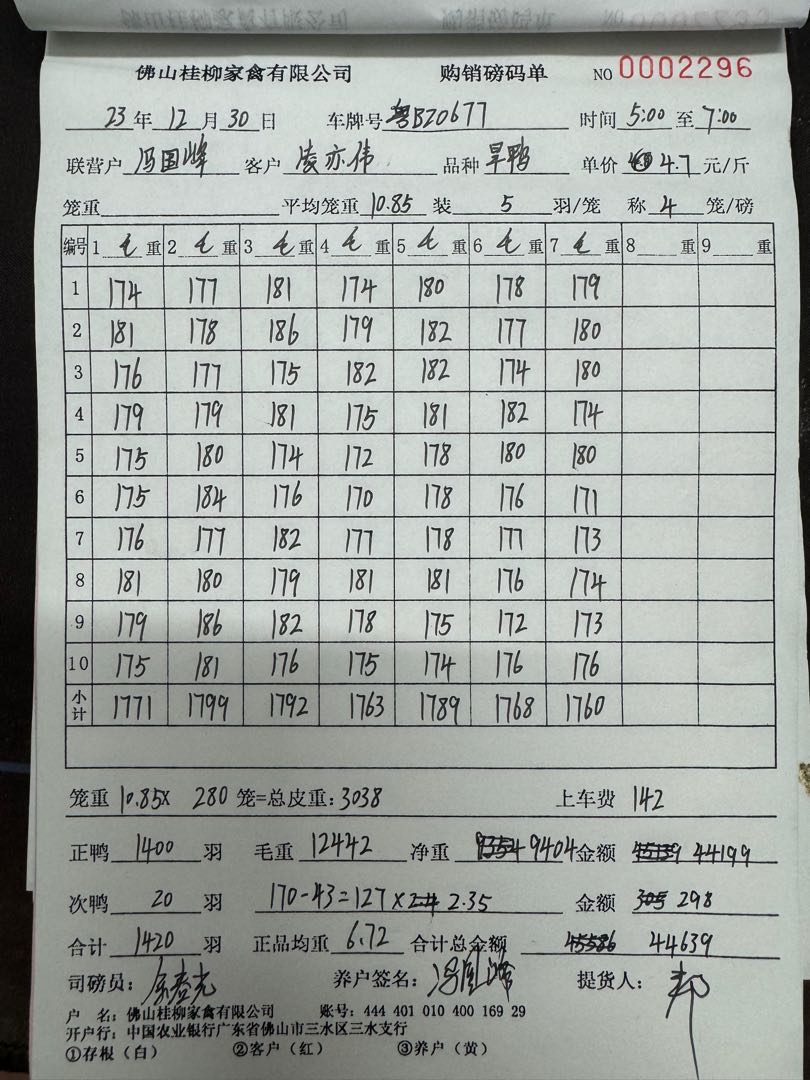 佛山桂柳家禽有限公司 购销磅码单 NO 0002296
23年 12月 30日 车牌号 粤BZ0677 时间 5:00 至 7:00
联营户 冯国峰 客户 凌亦伟 品种 旱鸭 单价 4.7 元/斤
笼重 平均笼重 10.85 装 5 羽/笼 称 4 笼/磅
编号 1 毛 重 2 毛 重 3 毛 重 4 毛 重 5 毛 重 6 毛 重 7 毛 重 8 重 9 重
1 174 177 181 174 180 178 179
2 181 178 186 179 182 177 180
3 176 177 175 182 182 174 180
4 179 179 181 175 181 182 174
5 175 180 174 172 178 180 180
6 175 184 176 170 178 176 171
7 176 177 182 177 178 177 173
8 181 180 179 181 181 176 174
9 179 186 182 178 175 172 173
10 175 181 176 175 174 176 176
小计 1771 1799 1792 1763 1789 1768 1760
笼重 10.85X 280 笼=总皮重:3038 上车费 142
正鸭 1400 羽 毛重 12442 净重 9404 金额 44199
次鸭 20 羽 170-43=127 × 2.35 金额 305 298
合计 1420 羽 正品均重 6.72 合计总金额 45586 44639
司磅员: 养户签名: 冯国峰 提货人: 邦
户 名: 佛山桂柳家禽有限公司 账号: 444 401 010 400 169 29
开户行: 中国农业银行广东省佛山市三水区三水支行
①存根(白) ②客户(红) ③养户(黄)